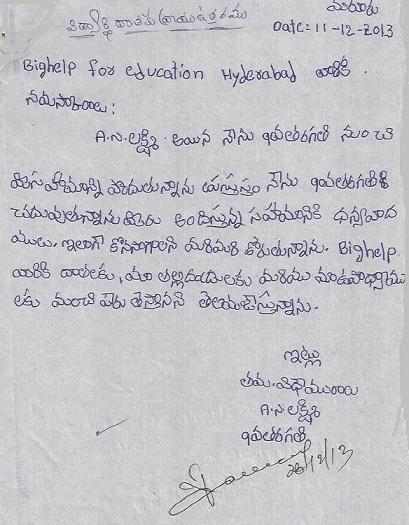 విద్యార్థి దాతకు వ్రాయు ఉత్తరము
Date: 11-12-2013
Bighelp for education Hyderabad వారికి.
నమస్కారాలు:
A.N.లక్ష్మి అయిన నేను 9వతరగతి నుంచి
మీ సహాయాన్ని పొందుతున్నాను ప్రస్తుతం నేను 9వతరగతి
చదువుతున్నాను మీరు అందిస్తున్న సహాయానికి ధన్యవాద
ములు. ఇలాగే కొనసాగాలని మరిమరి కోరుతున్నాను. Bighelp
వారికి దాతలకు, మా తల్లిదండ్రులకు మరియు మా ఉపాధ్యాయు
లకు మంచి పేరు తెస్తానని తెలియజేస్తున్నాను.
ఇట్లు
తమ విధేయురాలు
A.N లక్ష్మి
9వతరగతి
26/12/13